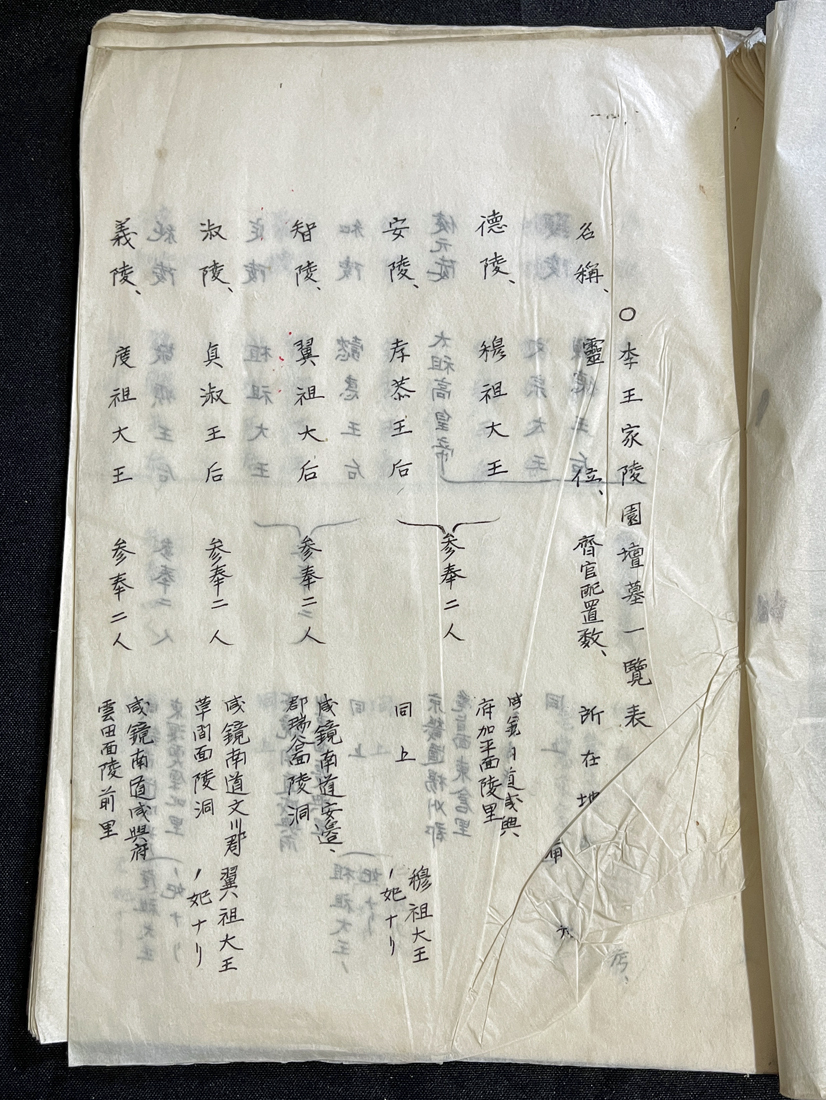 ○李王家陵園壇墓一覽表
名稱、靈位、齊官配置数、所在地
德陵、穆祖大王
参奉二人
府加平面陵里
安陵、孝恭王后
同上
穆祖大王
ノ妃ナリ
智陵、翼祖大后
参奉二人
咸鏡南道安邉、
郡瑞谷面陵洞
淑陵、貞淑王后
参奉二人
咸鏡南道文川郡
草閑面陵洞
翼祖大王
ノ妃ナリ
義陵、度祖大王
参奉二人
咸鏡南道咸興府
雲田面陵前里